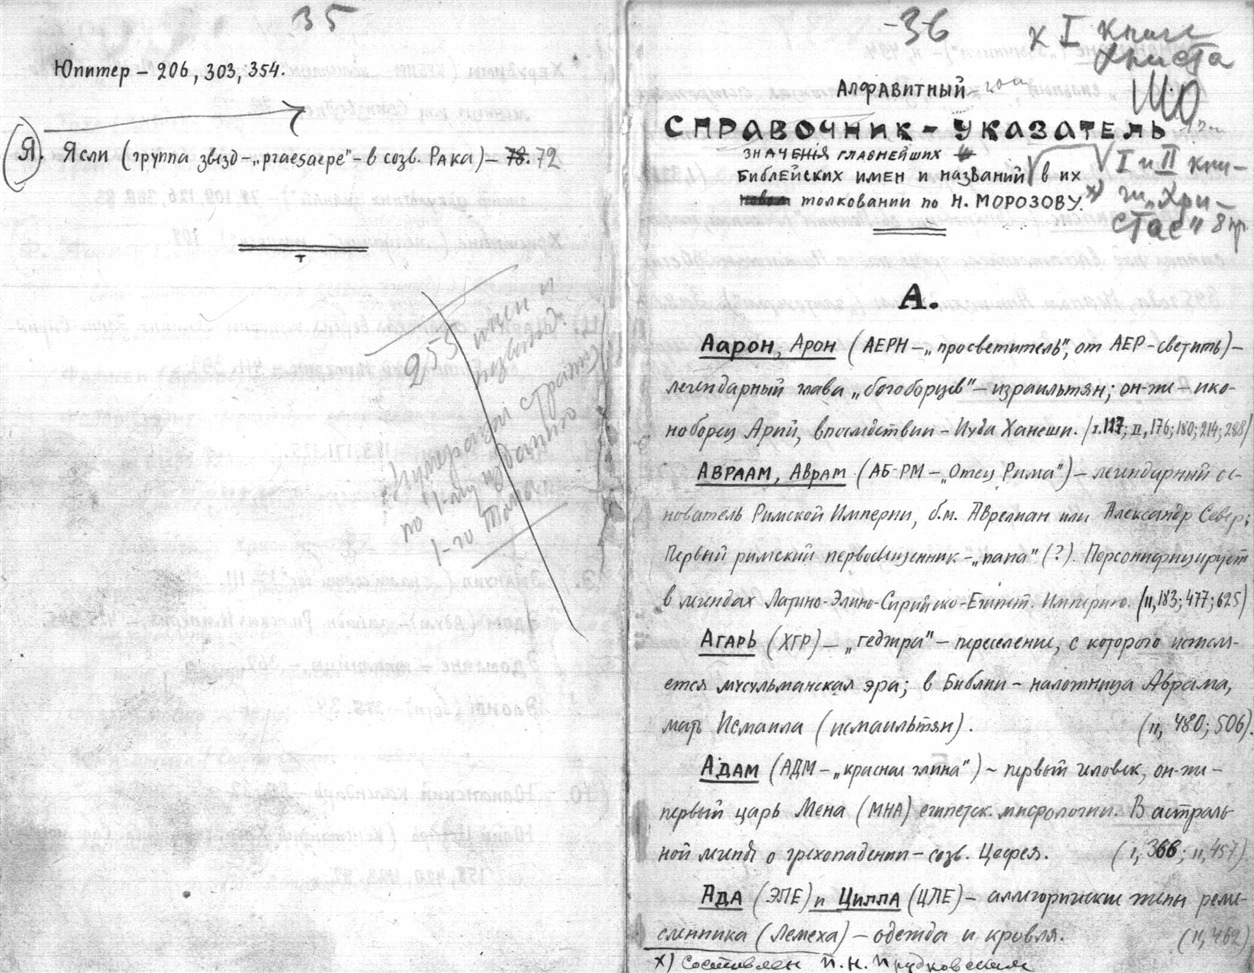 35
Юпитер – 206, 303, 354.
Я. Ясли (группа звѣзд – „praesaepe" – в созв. Рака) – 78. 72
253 имен и
Нумерация страниц
по 1-му изданию
1-го Тома
36
х I Книги
Христа
Алфавитный
СПРАВОЧНИК – УКАЗАТЕЛЬ
ЗНАЧЕНІЯ ГЛАВНЕЙШИХ
БИБЛЕЙСКИХ ИМЕН И НАЗВАНИЙ в их
толковании по Н. МОРОЗОВУ. х)
I и II кни-
ги „Хри-
стос"
А.
Аарон, Арон (АЕРН – „просветитель", от АЕР – светить) –
легендарный глава „богоборцев" – израильтян; он-же – ико-
ноборец Арий, впоследствии – Иуда Ханеши. (I, 117; II, 176; 180; 214; 288)
АВРААМ, Аврам (АБ-РМ – „Отец Рима") – легендарный ос-
нователь Римской Империи, б.м. Аврелиан или Александр Север;
Первый римский первосвященник – „папа" (?). Персонифицирует
в легендах Латино-Элино-Сирийско-Египет. Империю. (II, 183; 477; 625)
АГАРЬ (ХГР) – „геджра" – переселение, с которого исчисля-
ется мусульманская эра; в Библии – наложница Аврама,
мать Исмаила (исмаильтян). (II, 480; 506).
АДАМ (АДМ – „красная глина") – первый человек, он-же –
первый царь Мена (МНА) египетск. мифологии. В астраль-
ной легенде о грехопадении – созв. Цефея. (I, 366; II, 457)
АДА (ЭЛЕ) и ЦИЛЛА (ЦЛЕ) – аллегорические жены реме-
сленника (Лемеха) – одежда и кровля. (II, 462)
х) Составлен П. Н. Прудковским